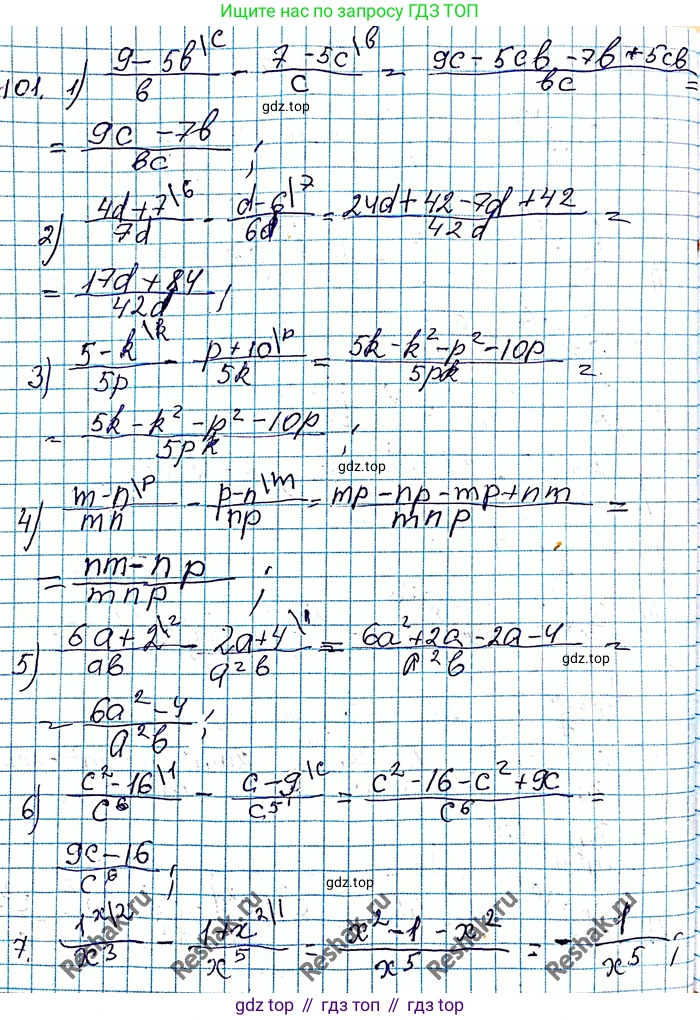 Ищите нас по запросу ГДЗ ТОП
101. 1) (9-5b\c)/b - (7-5c\b)/c = (9c-5cb-7b+5cb)/bc =
gdz.top
= (9c-7b)/bc ;
2) (4d+7\6)/7d - (d-6\7)/6d = (24d+42-7d+42)/42d =
= (17d+84)/42d ;
3) (5-k\k)/5p - (p+10\p)/5k = (5k-k²-p²-10p)/5pk =
= (5k-k²-p²-10p)/5pk ;
gdz.top
4) (m-n\p)/mn - (p-n\m)/np = (mp-np-mp+nm)/mnp =
= (nm-np)/mnp ;
5) (6a+2\²)/ab - (2a+4\1)/a²b = (6a²+2a-2a-4)/a²b =
gdz.top
= (6a²-4)/a²b ;
6) (c²-16\1)/c⁶ - (c-9\c)/c⁵ = (c²-16-c²+9c)/c⁶ =
(9c-16)/c⁶ ;
gdz.top
7. (1\x²)/x³ - (1+x²\1)/x⁵ = (x²-1-x²)/x⁵ = -1/x⁵ ;
Reshak.ru Reshak.ru Reshak.ru Reshak.ru Reshak.ru
gdz.top // гдз.топ // gdz.top // гдз.топ